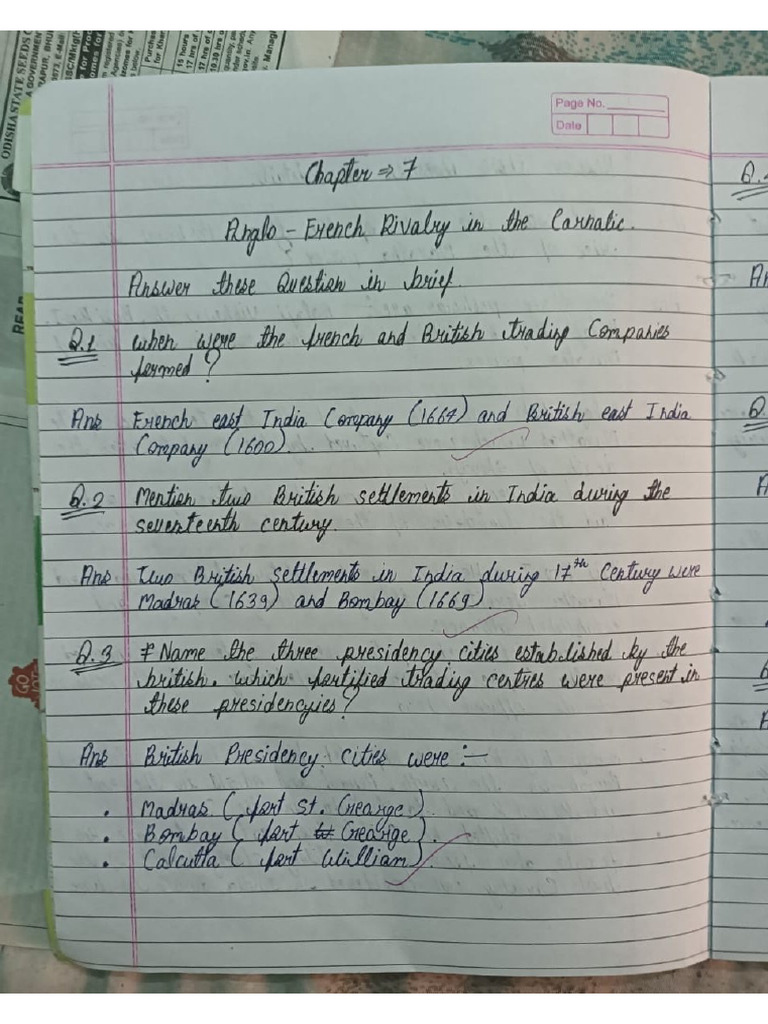 ODISHA STATE SEEDS
Page No.
Date
Chapter ⇒ 7
Anglo - French Rivalry in the Carnatic.
Answer these Question in brief.
Q.1 when were the french and British trading Companies
formed?
Ans French east India Company (1664) and British east India
Company (1600).
Q.2 Mention two British settlements in India during the
seventeenth century.
Ans Two British settlements in India during 17th Century were
Madras (1639) and Bombay (1669).
Q.3 Name the three presidency cities established by the
british. which fortified trading centres were present in
these presidencyies?
Ans British Presidency cities were :-
• Madras ( fort St. George).
• Bombay ( fort George).
• Calcutta ( fort William).